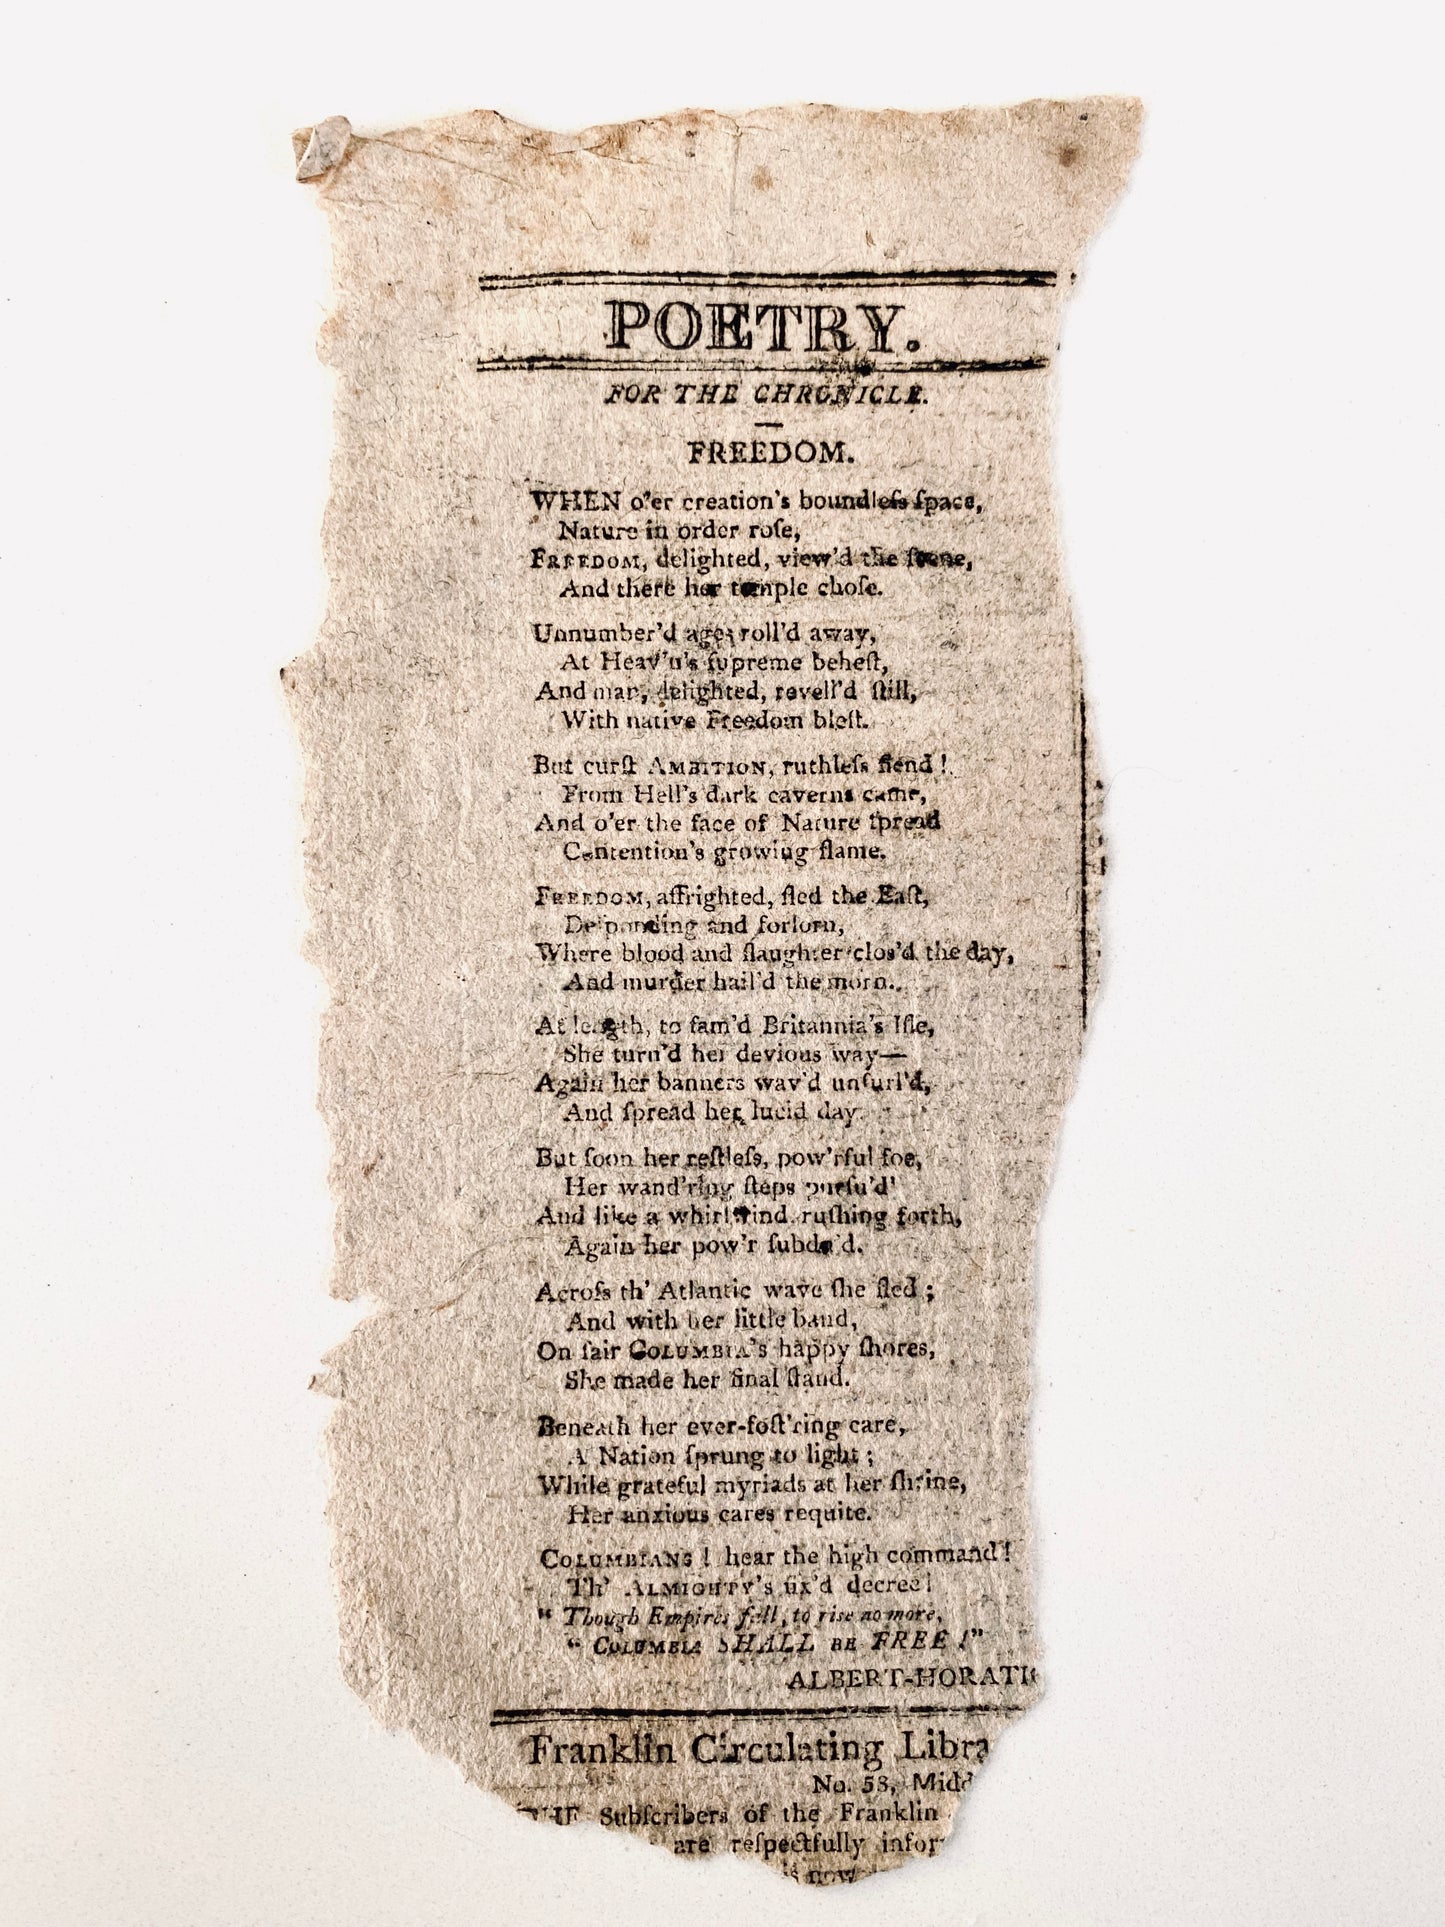 POETRY.
FOR THE CHRONICLE.
FREEDOM.
WHEN o'er creation's boundleſs ſpace,
Nature in order roſe,
FREEDOM, delighted, view'd the ſcene,
And there her temple choſe.
Unnumber'd ages roll'd away,
At Heav'n's ſupreme beheſt,
And man, delighted, revell'd ſtill,
With native Freedom bleſt.
But curſt AMBITION, ruthleſs fiend!
From Hell's dark caverns came,
And o'er the face of Nature ſpread
Contention's growing flame.
FREEDOM, affrighted, fled the Eaſt,
Deſponding and forlorn,
Where blood and ſlaughter clos'd the day,
And murder hail'd the morn.
At length, to fam'd Britannia's Iſle,
She turn'd her devious way—
Again her banners wav'd unfurl'd,
And ſpread her lucid day.
But ſoon her reſtleſs, pow'rful foe,
Her wand'ring ſteps purſu'd
And like a whirlwind ruſhing forth,
Again her pow'r ſubdu'd.
Acroſs th' Atlantic wave ſhe fled;
And with her little band,
On fair COLUMBIA's happy ſhores,
She made her final ſtand.
Beneath her ever-foſt'ring care,
A Nation ſprung to light;
While grateful myriads at her ſhrine,
Her anxious cares requite.
COLUMBIANS! hear the high command!
Th' ALMIGHTY's fix'd decree!
" Though Empires fall, to rise no more,
" COLUMBIA SHALL BE FREE!"
ALBERT-HORATI
Franklin Circulating Libra
No. 58, Midd
THE Subſcribers of the Franklin
are reſpectfully infor
now